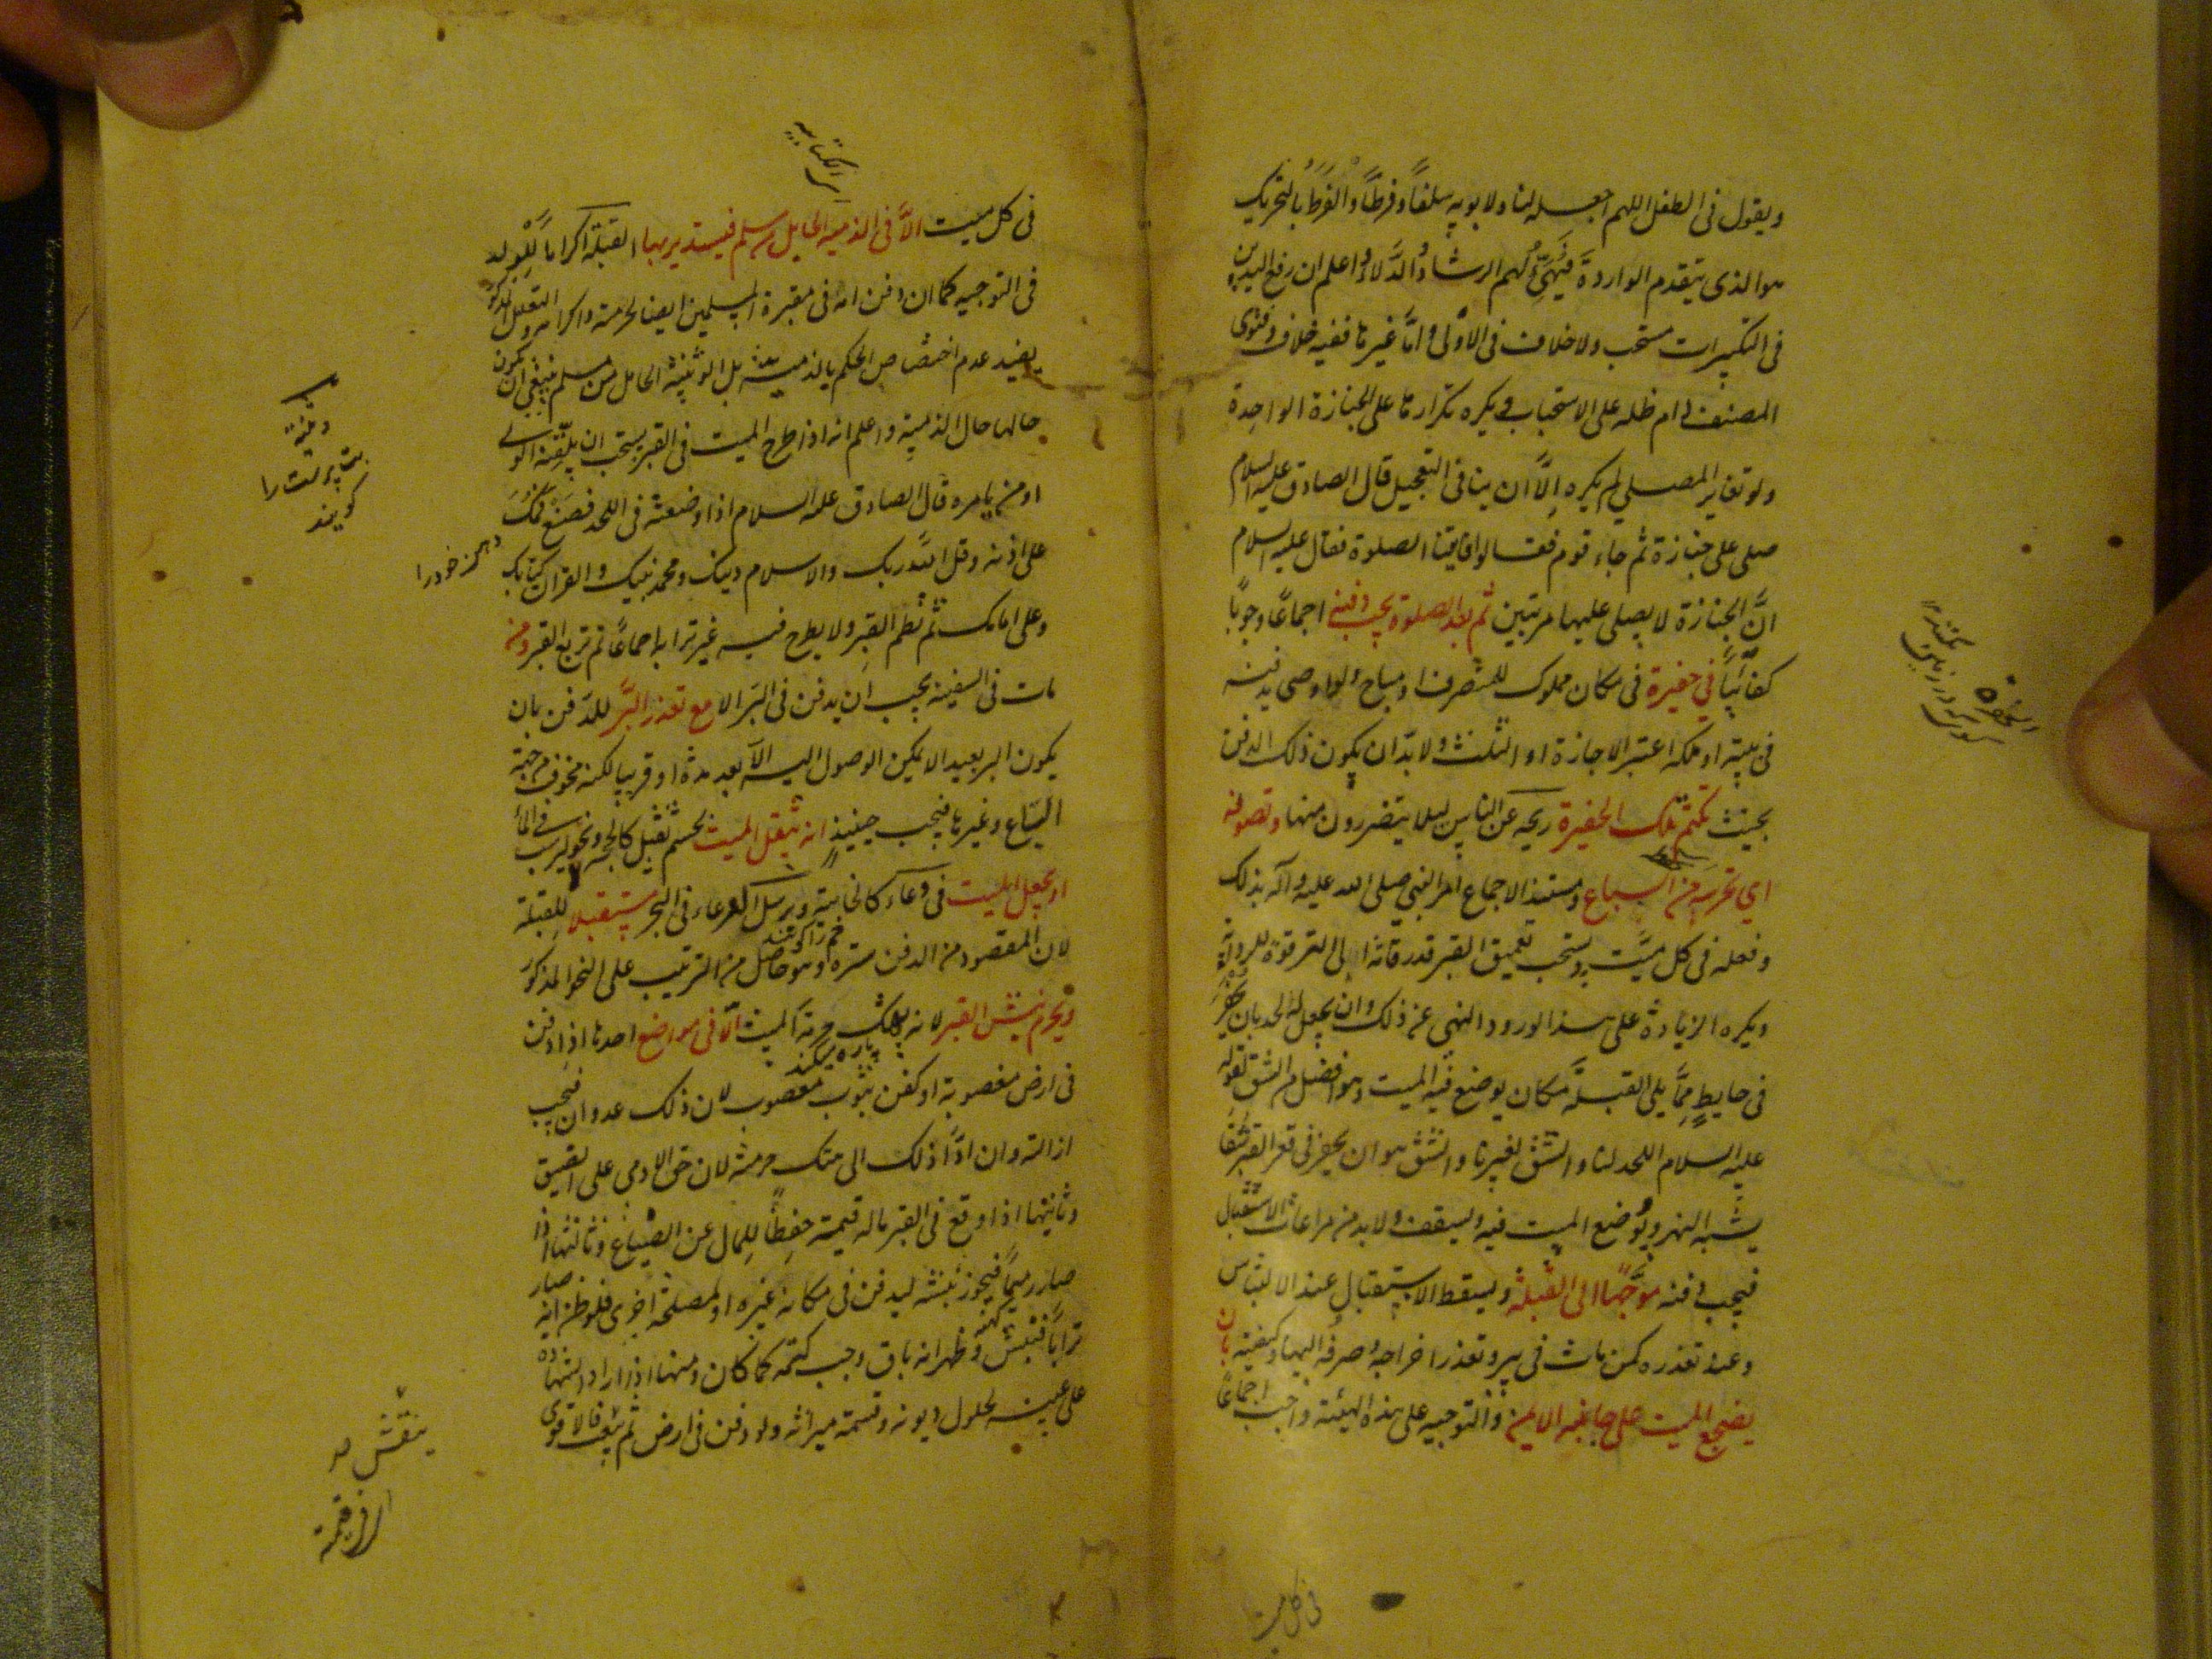 ويقول فى الطفل اللهم اجعله لنا ولابويه سلفًا وفرطًا والفَرَطُ بالتحريك
هو الذى يتقدم الواردة فيُهَيِّئُ لهم الرشاء والدَّلاء واعلم ان رفع اليدين
فى التكبيرات مستحب ولا خلاف فى الاوّلى وامّا غيرها ففيه خلاف وفتوى
المصنف دام ظله على الاستحباب ويكره تكرارها على الجنازة الواحدة
ولو تغاير المصلى لم يكره اِلّا ان ينافى التعجيل قال الصادق عليه السلام
صلى على جنازة ثم جاء قوم فقالوا فاتتنا الصلوة فقال عليه السلام
انَّ الجنازة لا يصلى عليها مرتين ثم بعد الصلوة يجب دفنه اجماعًا وجوبًا
كفائيًا فى حفيرة فى مكان مملوك للمتصرف او مباح ولو اوصى بدفنه
فى بيته او ملكه اعتبر الاجازة او الثلث ولا بدّ ان يكون ذلك الدفن
بحيث تكتم تلك الحفيرة ريحه عن الناس لئلا يتضررون منها وتصونه
اى تحرسه من السباع ومستند الاجماع امر النبى صلى الله عليه وآله بذلك
وفعله فى كل ميّت ويستحب تعميق القبر قدر قامة او الى الترقوة للرواية
ويكره الزيادة على هذا لورود النهى عن ذلك وان يجعل له لحد بان يحفر
فى حايطٍ مِمّا يلى القبلة مكان يوضع فيه الميت وهو افضل من الشق لقوله
عليه السلام اللحد لنا والشق لغيرنا والشق هو ان يحفر فى قعر القبر شقا
يشبه النهر ويُوضع الميت فيه ويسقف ولا بد من مراعات الاستقبال
فيجب دفنه موجَّهًا الى القبلة ويسقط الاستقبال عند الالتباس
وعند تعذره كمن مات فى بير وتعذر اخراجه وصرفه اليها وكيفيته بان
يضجع الميت على جانبه الايمن والتوجيه على هذه الهيئة واجب اجماعًا
الحفرة
فى كل ميت
فى كل ميت الّا فى الذمية الحامل من مسلم فيستدبر بها القبلة اكرامًا لِلولد
فى التوجيه كما ان دفن امه فى مقبرة المسلمين ايضا لحرمته واكرامه والتعليل المذكور
يفيد عدم اختصاص الحكم بالذمية بل الوثنية الحامل من مسلم ينبغى ان يكون
حالها حال الذمية واعلم انه اذا طرح الميت فى القبر يستحب ان يلقّنه الولى
او من يامره قال الصادق عليه السلام اذا وضعته فى اللحد فضَع فمَكَ
على اذنه وقل الله ربك والاسلام دينك ومحمد نبيك والقرآن كتابك
وعلى امامك ثم تطم القبر ولا يطرح فيه غير ترابه اجماعًا ثم تربع القبر ومن
مات فى السفينة يجب ان يدفن فى البَر الا مع تعذر البَّر للدّفن بان
يكون البر بعيدا لا يمكن الوصول اليه الّا بعد مدة او قريبا لكنه مخوف من جهة
السّباع وغيرها فيجب حينئذٍ انه يثقل الميت بجسم ثقيل كالحجر ونحوه ليرسب فى الماء
او يجعل الميت فى وعاء كالخابية ويرسل الوعاء فى البحر مستقبلا لِلقبلة
لان المقصود من الدفن ستره وهو حاصل من الترتيب على النحو المذكور
ويحرم نبش القبر لانه يهتك حرمة الميت الّا فى مواضع احدها اذا دفن
فى ارض مغصوبة او كفن بثوب مغصوب لان ذلك عدوان فيجب
ازالته وان ادّا ذلك الى هتك حرمته لان حق الادمى على الضيق
وثانيتها اذا وقع فى القبر ماله قيمة حفظًا لِلمال عن الضياع وثالثتها اذا
صار رميمًا فيجوز نبشه ليدفن فى مكانه غيره او لمصلحة اخرى فلو ظن انه صار
ترابًا فنبش وظهر انه باق وجب كتمه كما كان ومنها اذا اراد الشهادة
على عينه لحلول ديونه وقسمة ميراثه ولو دفن فى ارض ثم بيعت فالاقوى
وثنية
بت پرست را
گویند
دهن خود را
خم را گویند
پاره میکند
کهنه